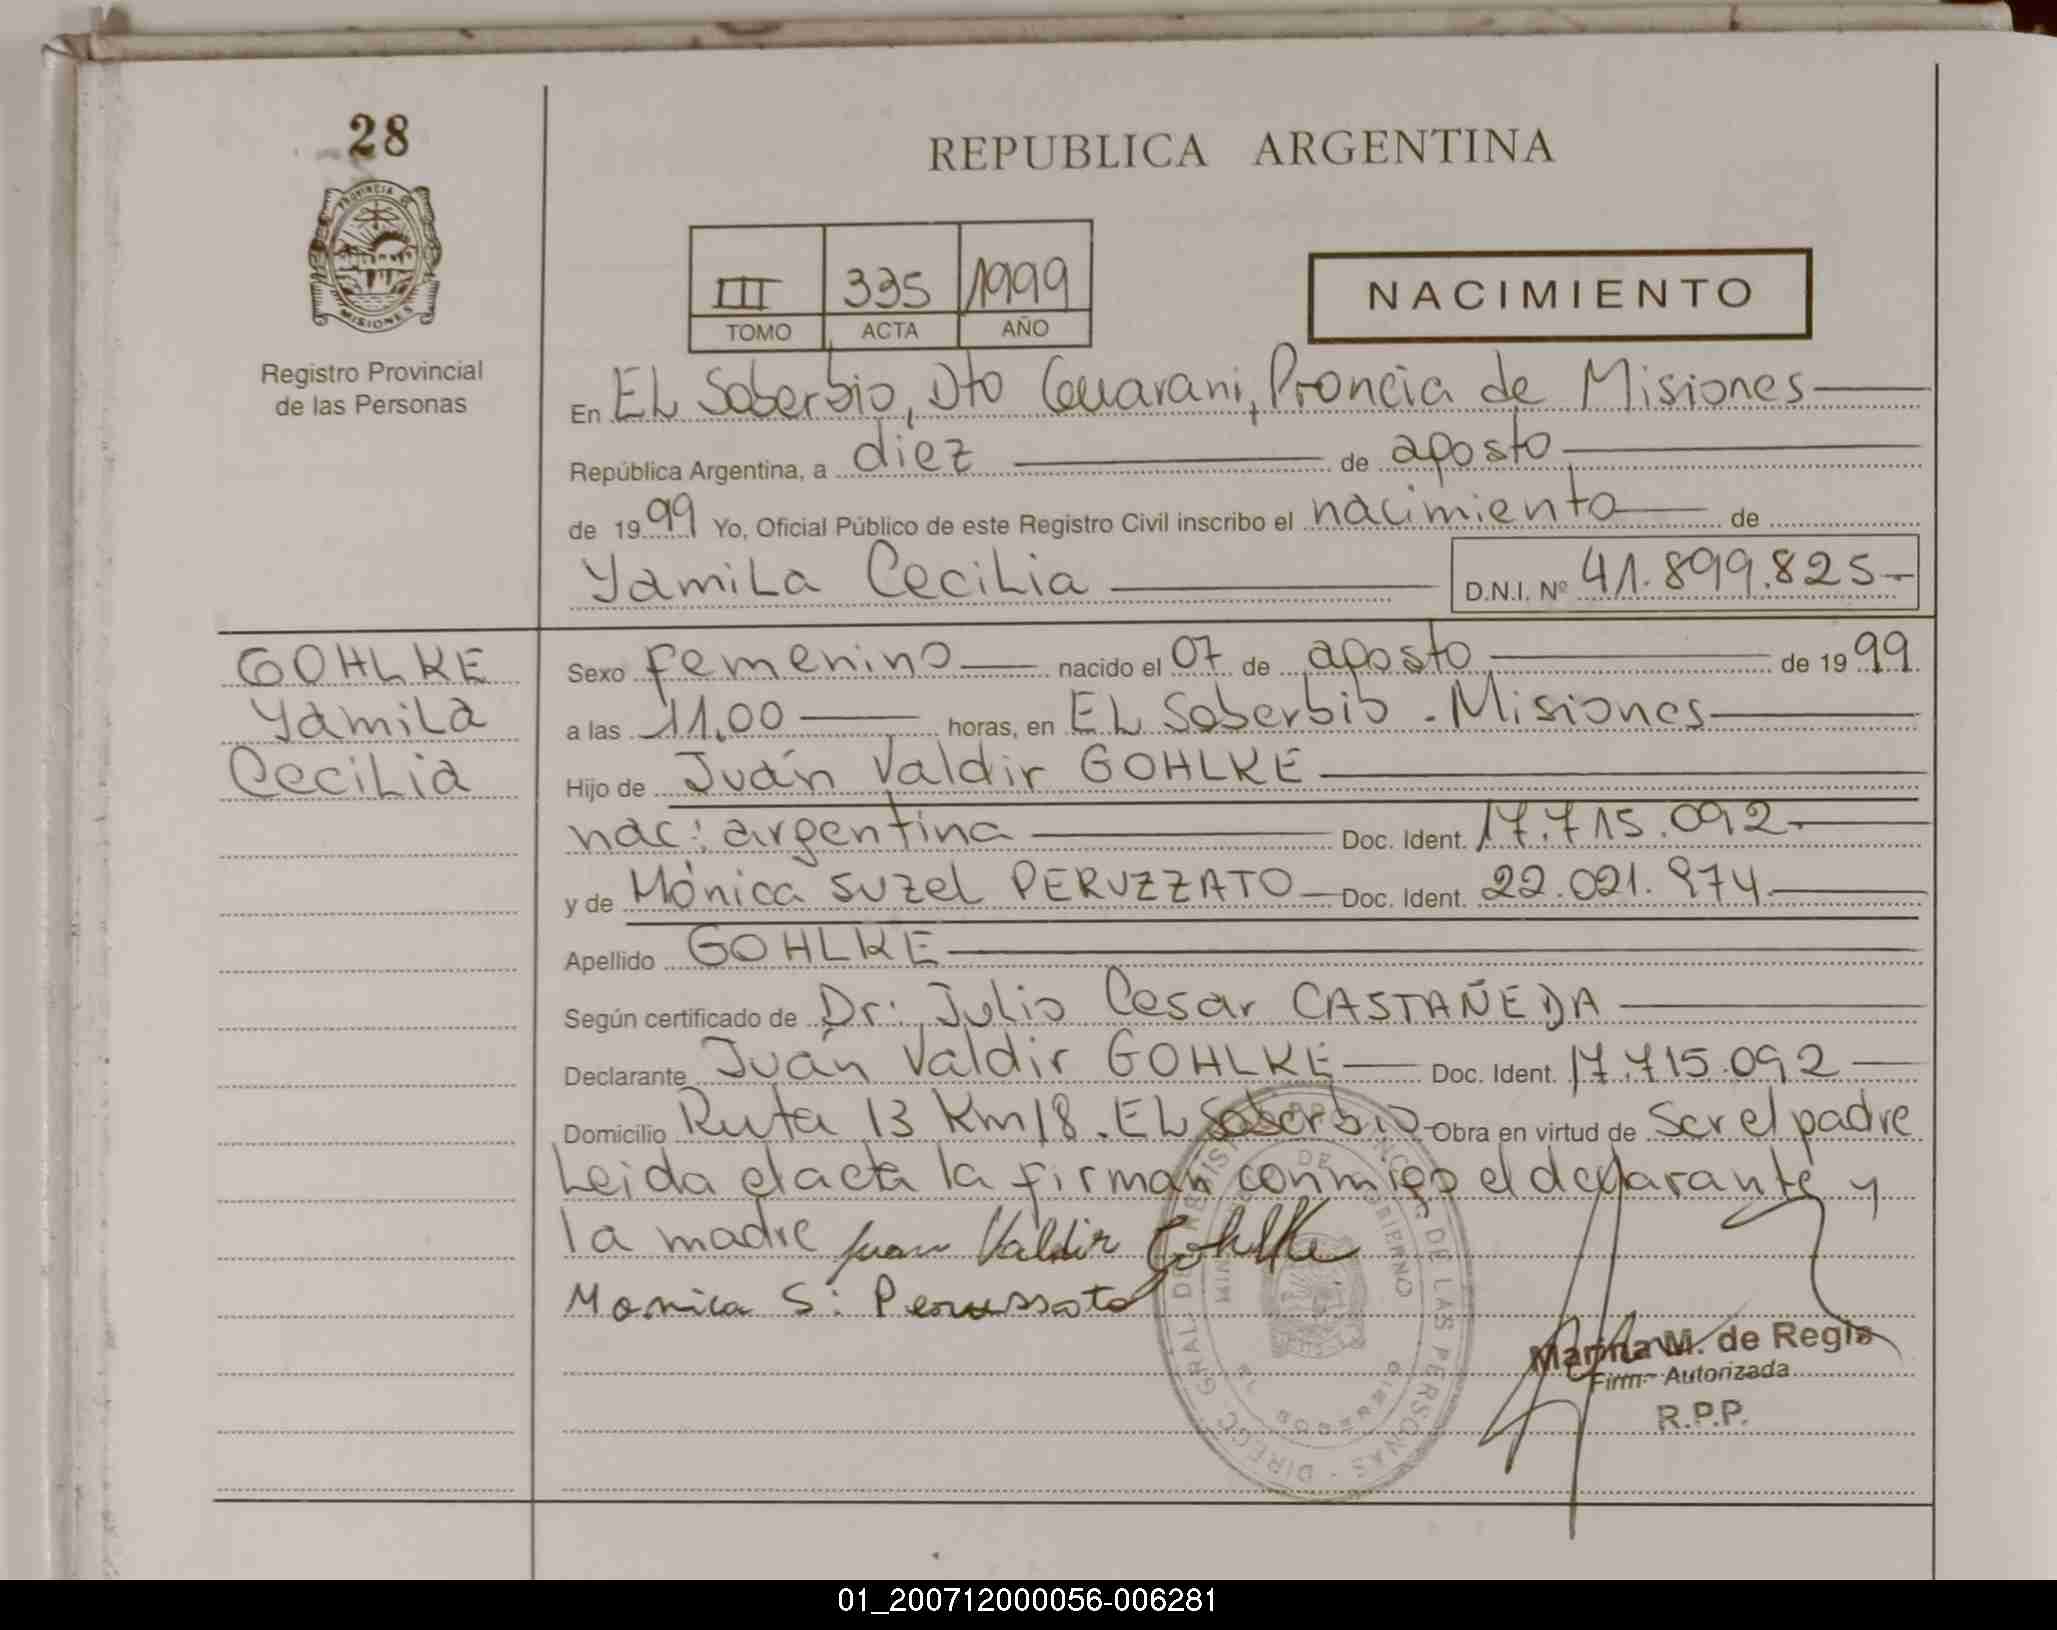 28
REPUBLICA ARGENTINA
PROVINCIA DE
MISIONES
Registro Provincial
de las Personas
III 335 1999
TOMO ACTA AÑO
NACIMIENTO
En EL Soberbio, Dto Guarani, Proncia de Misiones
República Argentina, a diez de agosto
de 1999 Yo, Oficial Público de este Registro Civil inscribo el nacimiento de
Yamila Cecilia D.N.I. Nº 41.899.825-
GOHLKE
Yamila
Cecilia
Sexo Femenino nacido el 07 de agosto de 1999
a las 11.00 horas, en EL Soberbio - Misiones
Hijo de Juán Valdir GOHLKE
nac: argentina Doc. Ident. 17.715.092
y de Mónica Suzel PERUZZATO Doc. Ident. 22.021.974
Apellido GOHLKE
Según certificado de Dr: Julio Cesar CASTAÑEDA
Declarante Juán Valdir GOHLKE Doc. Ident. 17.715.092
Domicilio Ruta 13 Km 18. EL Soberbio Obra en virtud de Ser el padre
Leida el acta la firman conmigo el declarante y
la madre Juan Valdir Gohlke
Monica S: Perussato
DIRECC. GRAL. DE REGISTRO PROVINC. DE LAS PERSONAS
DE GOBIERNO
EL SOBERBIO
Marina M. de Regis
Firma Autorizada
R.P.P.
01_200712000056-006281